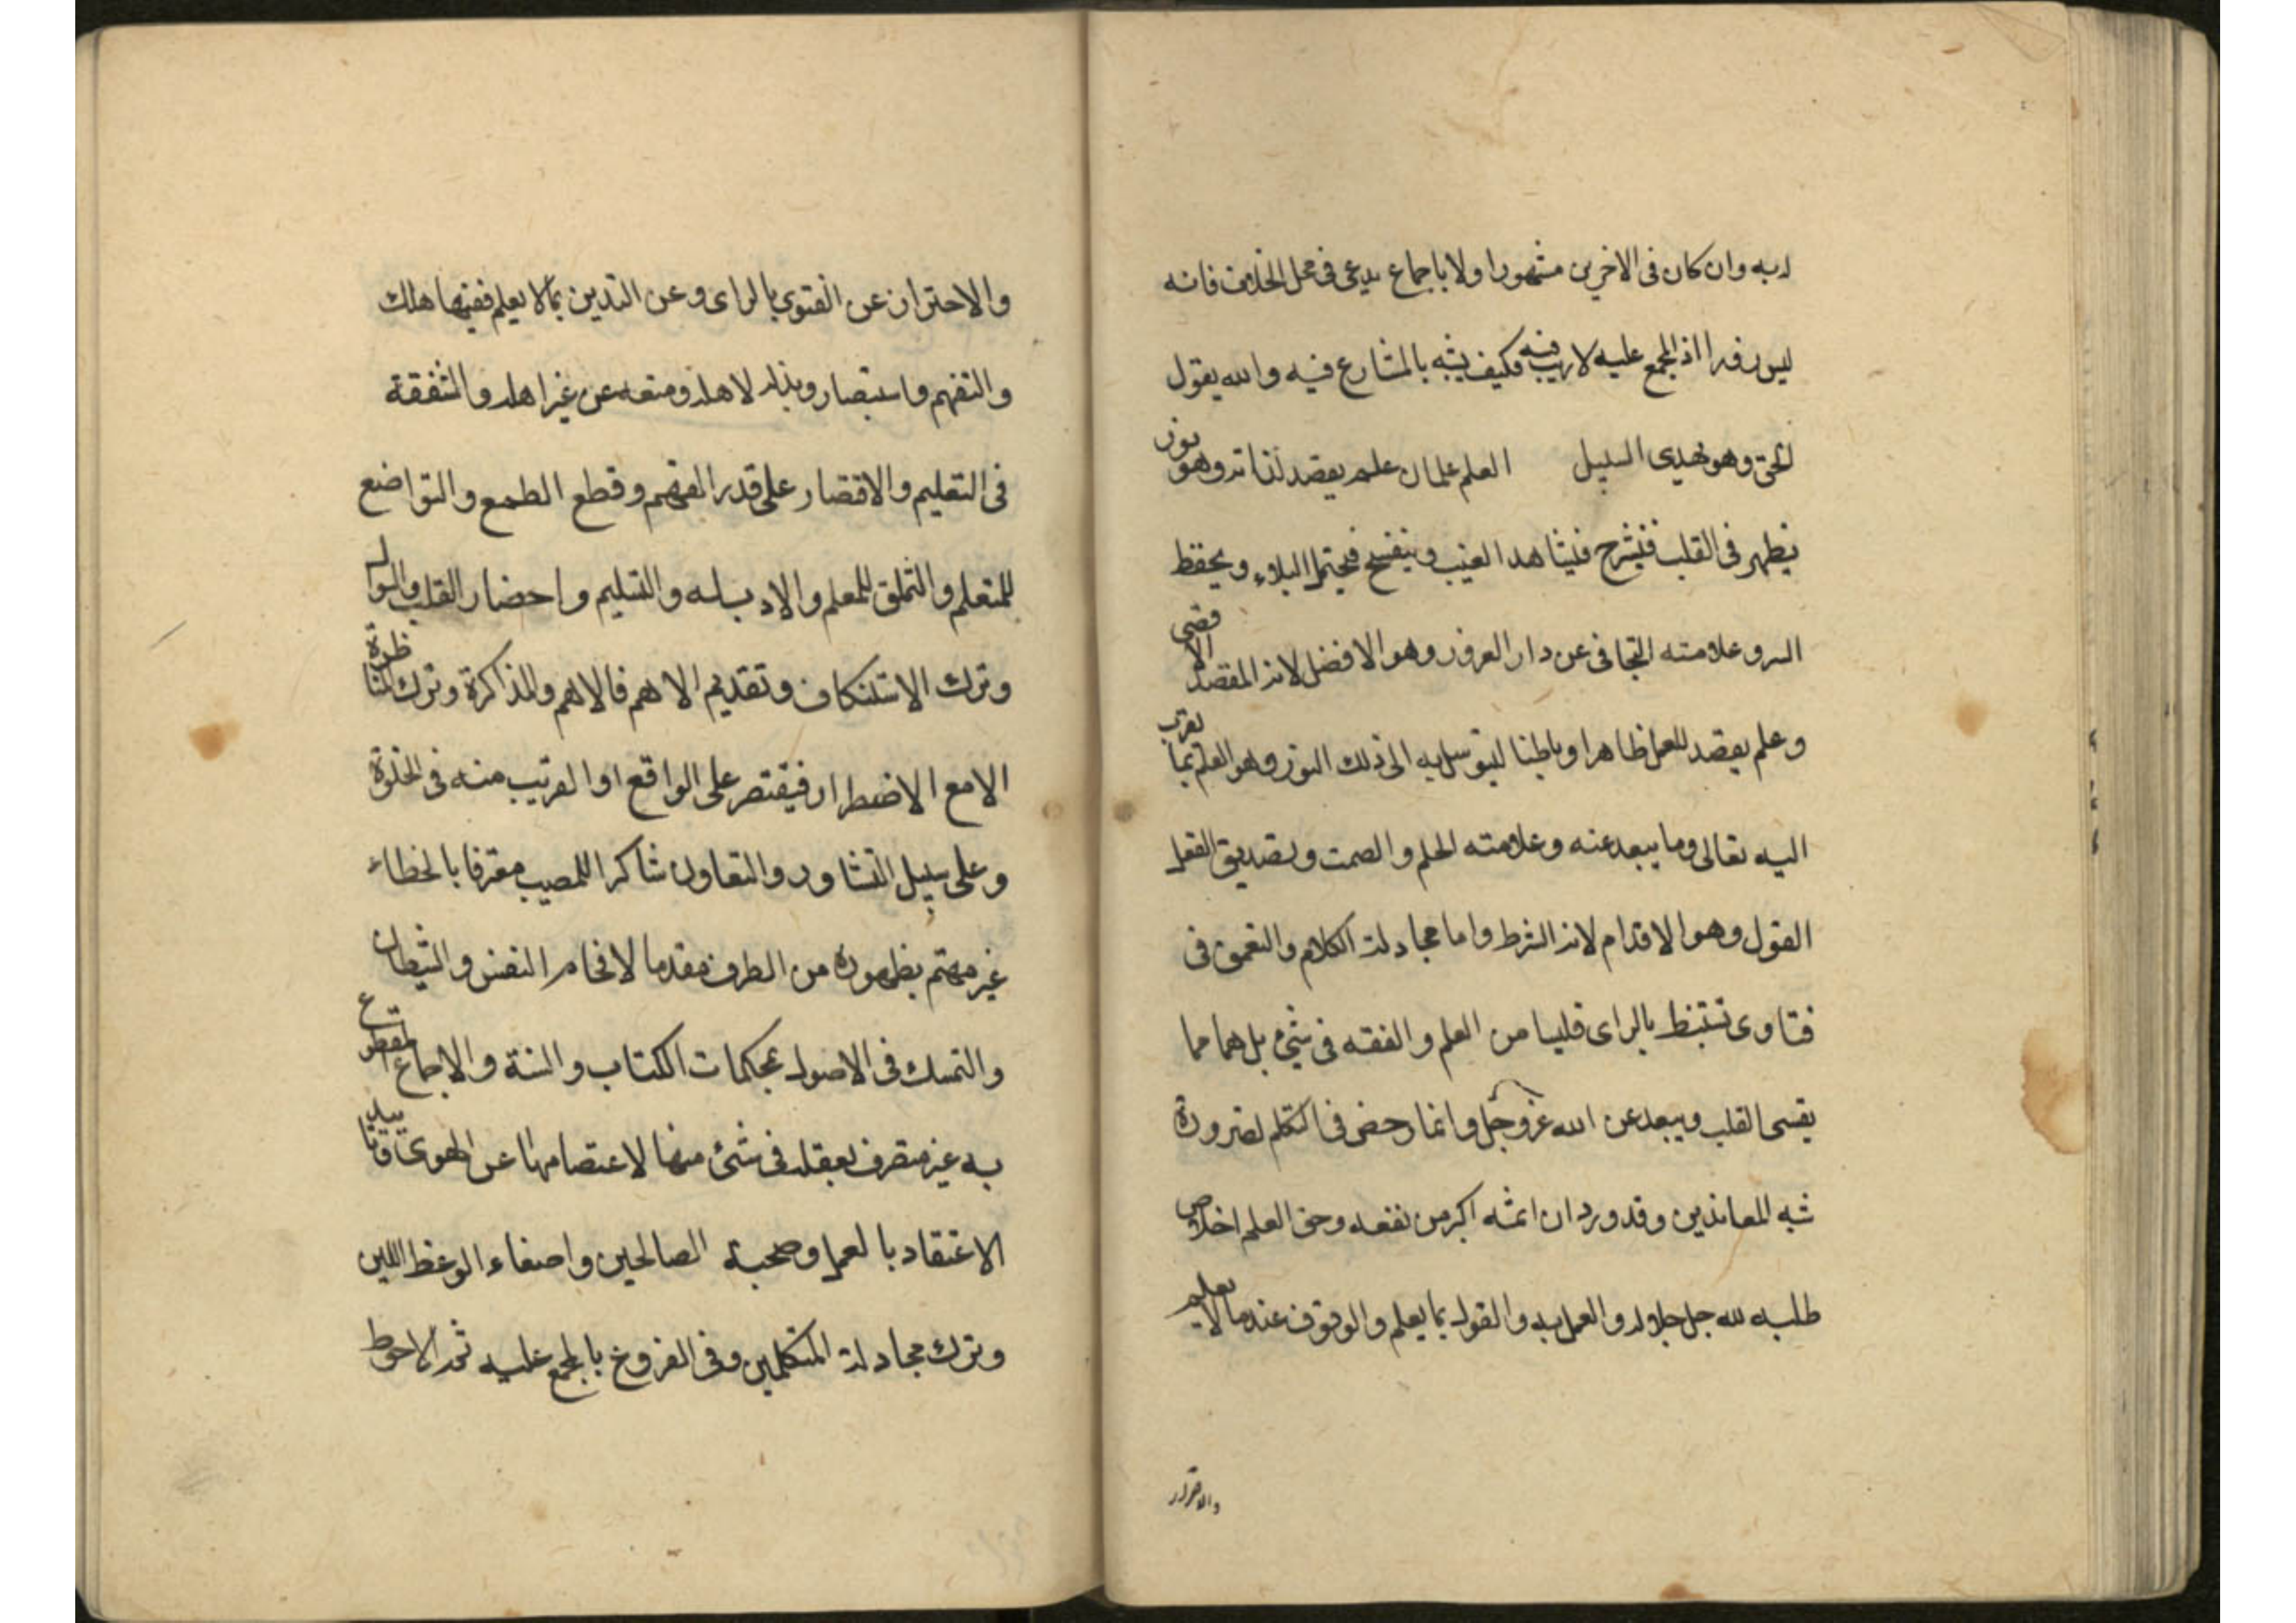 به وان كان فى الاخرين مشهورا ولا باجماع يدعى فى محل الخلاف فانه
ليس اذ المجمع عليه لا ريب فيه فكيف يشبه بالمتنازع فيه والله يقول
الحق وهو يهدى السبيل العلم علمان علم يقصد لذاته وهو نور
يظهر فى القلب فينشرح فيشاهد الغيب وينفسح فيحتمل البلاء ويحفظ
السر وعلامته التجافى عن دار الغرور وهو الافضل لانه المقصد الاقصى
وعلم يقصد للعمل ظاهرا وباطنا ليتوسل به الى ذلك النور وهو العلم بما يقرب
اليه تعالى وما يبعد عنه وعلامته الحلم والصمت وتصديق الفعل
القول وهو الاقدام لانه الشرط واما مجادلة الكلام والتعمق فى
فتاوى تستنبط بالراى فليسا من العلم والفقه فى شئ بل هما مما
يقسى القلب ويبعد عن الله عز وجل وانما رخص فى التكلم لضرورة
شبه المعاندين وقد ورد ان اثمه اكبر من نفعه وحق العلم اخلاص
طلبه لله جل جلاله والعمل به والقول بما يعلم والوقوف عند ما لا يعلم
والاحتراز عن الفتوى بالراى وعن التدين بما لا يعلم ففيها هلك
والتفهم واستبصار وبذله لاهله ومنعه عن غير اهله والشفقة
فى التعليم والاقتصار على قدر الفهم وقطع الطمع والتواضع
للمتعلم والتملق للمعلم والادب له والتسليم واحضار القلب والسوال
وترك الاستنكاف وتقديم الاهم فالاهم والمذاكرة وترك المناظرة
الا مع الاضطرار فيقتصر على الواقع او القريب منه فى الخلوة
وعلى سبيل التشاور والتعاون شاكرا للمصيب معترفا بالخطاء
غير مهتم بظهوره من الطرف مقدما لافحام النفس والشيطان
والتمسك فى الاصول بمحكمات الكتاب والسنة والاجماع المقطوع
به غير متصرف بعقله فى شئ منها لاعتصامها عن الهوى وتاييد
الاعتقاد بالعمل وصحبة الصالحين واصغاء الوعظ اللين
وترك مجادلة المتكلمين وفى الفروع بالمجمع عليه ثم الاحوط